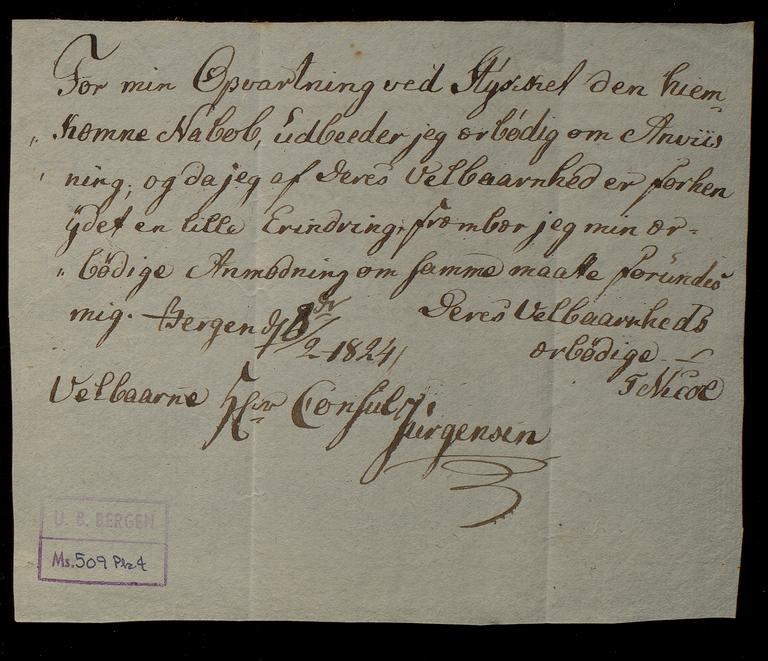 For min Opvartning ved Stykket den hiem-
„ komne Nabob, udbeeder jeg ærbödig om Anviis
„ ning; og da jeg af Deres Velbaarnhed er forhen
ydet en lille Erindring, frembær jeg min ær-
„ bödige Anmodning om samme maatte forundes
mig. Bergen d 8de Deres Velbaarnheds
2 1824 ærbödige
Velbaarne Hr Consul Jürgensen T Nicol
U. B. BERGEN
Ms. 509